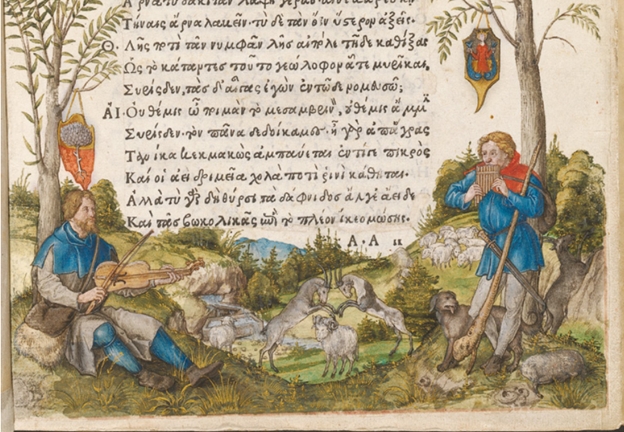 Τήναις ἄρνα λαβεῖν· τὺ δὲ τὰν ὄϊν ὕστερον ἀξεῖς.
Θ. Λῇς ποτὶ τᾶν νυμφᾶν λῇς αἰπόλε τῇδε καθίξας
Ὡς τὸ κάταντες τοῦτο γεώλοφον ᾇτε μυρῖκαι,
Συρίσδεν, τὰς δ' αἶγας ἐγὼν ἐν τῷδε νομευσῶ;
ΑΙ. Οὐ θέμις ὦ ποιμὰν τὸ μεσαμβρινὸν, οὐ θέμις ἄμμιν
Συρίσδεν· τὸν πᾶνα δεδοίκαμες· ἦ γὰρ ἀπ' ἄγρας
Τανίκα κεκμακὼς ἀμπαύεται ἐντί γε πικρὸς
Καί οἱ ἀεὶ δριμεῖα χολὰ ποτὶ ῥινὶ κάθηται.
Ἀλλὰ τὺ γὰρ δὴ θύρσι τὰ δάφνιδος ἄλγε' ἄειδε
Καὶ τᾶς βωκολικᾶς ἐπὶ τὸ πλέον ἵκεο μώσης.
A.A ii